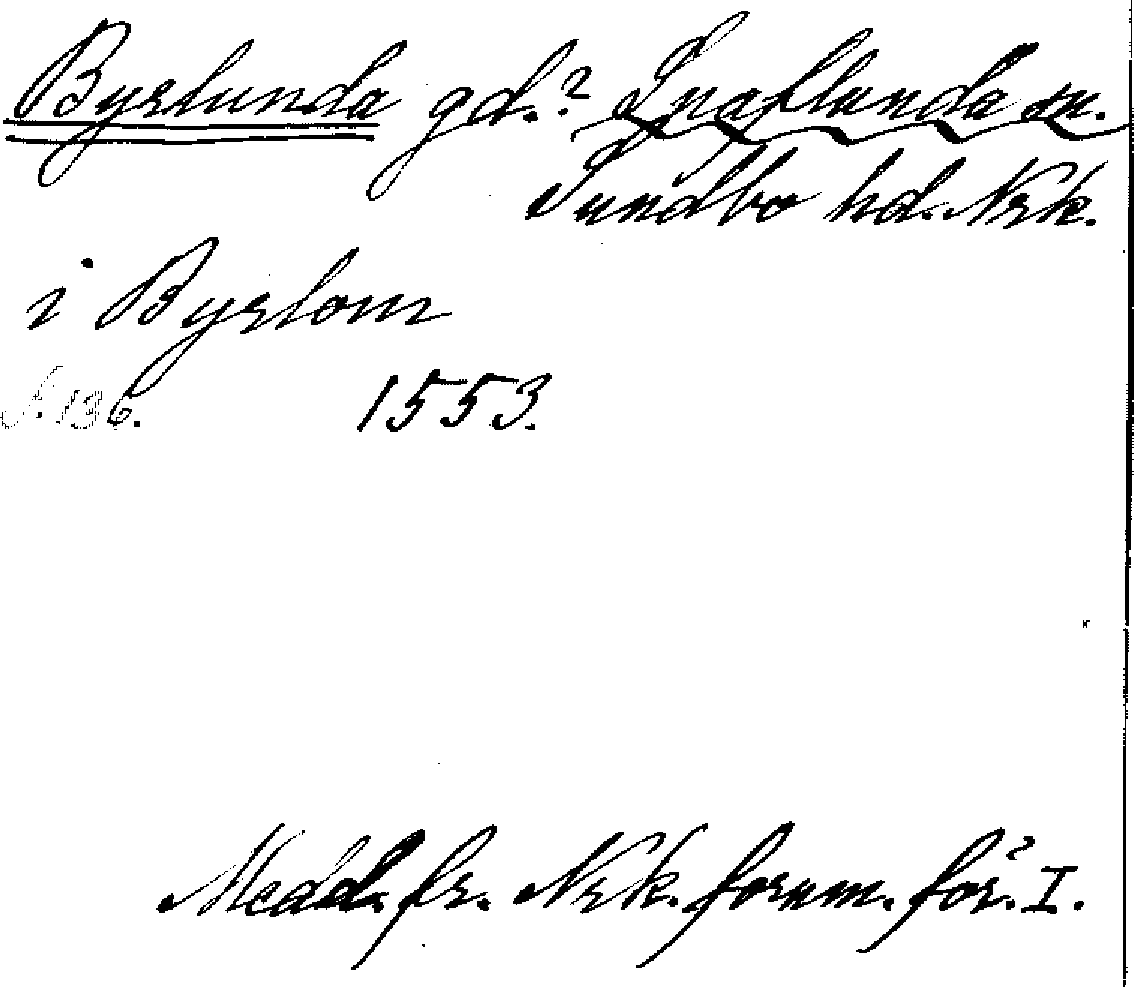 Byrlunda gd.? Snaflunda sn.
Sundbo hd. Nrk.
i Byrlom
S. 136. 1553.
Medd. fr. Nrk. fornm. för. I.